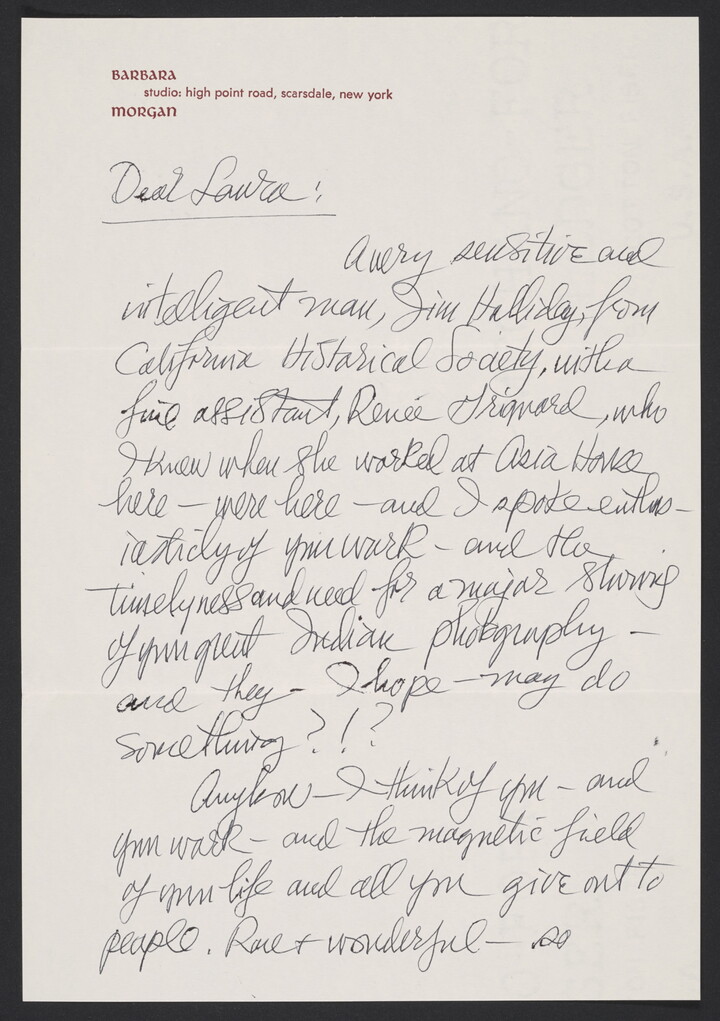 BARBARA
studio: high point road, scarsdale, new york
MORGAN
Dear Laura:
A very sensitive and
intelligent man, Jim Halliday, from
California Historical Society, with a
fine assistant, Renée Grignard, who
I knew when she worked at Asia House
here – were here – and I spoke enthus-
iasticly of your work – and the
timelyness and need for a major showing
of your great Indian photography –
and they – I hope – may do
something?!?
Anyhow – I think of you – and
your work – and the magnetic field
of your life and all you give out to
people. Rare + wonderful – so